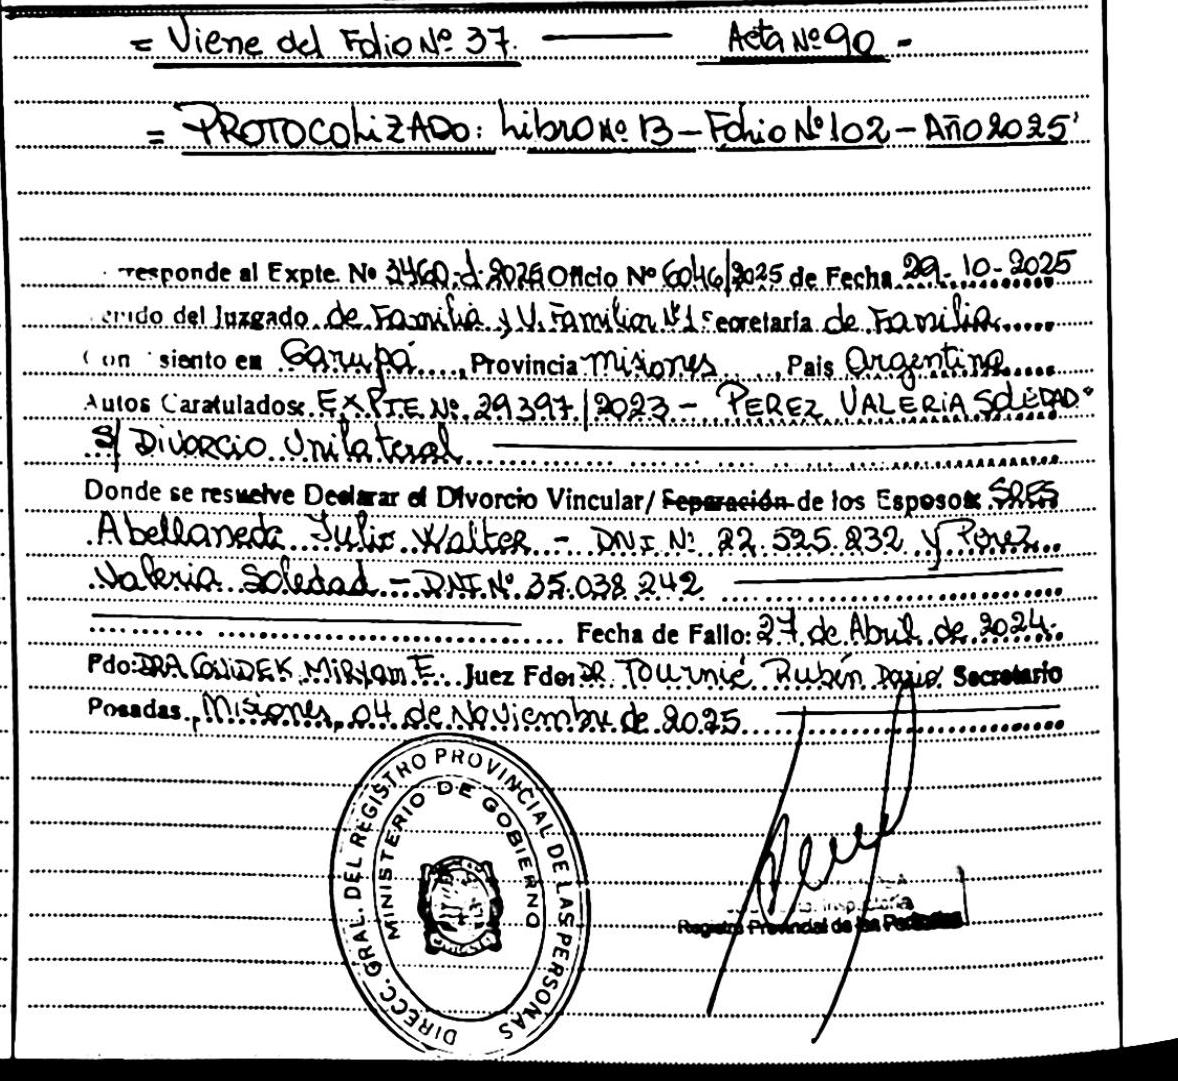 = Viene del Folio Nº 37. — Acta Nº 90 -
= PROTOCOLIZADO: Libro Nº 13 - Folio Nº 102 - Año 2025
responde al Expte. Nº 3460-d-2025 Oficio Nº 6046/2025 de Fecha 29-10-2025
del Juzgado de Familia y V. Familiar Nº1 Secretaría de Familia
Con asiento en Garupá, Provincia Misiones, Pais Argentina
Autos Caratulados: EXPTE Nº 29397/2023 - PEREZ VALERIA SOLEDAD
S/ Divorcio Unilateral
Donde se resuelve Declarar el Divorcio Vincular/ Separación de los Esposos: SRES
Abellaneda Julio Walter - DNI Nº 22.525.232 y Perez
Valeria Soledad - DNI Nº 35.038.242
Fecha de Fallo: 27 de Abril de 2024.
Fdo: DRA Miryam E. Juez Fdo: DR. Tournié Rubén Dario Secretario
Posadas, Misiones, 04 de Noviembre de 2025
DIRECC. GRAL. DEL REGISTRO PROVINCIAL DE LAS PERSONAS
MINISTERIO DE GOBIERNO
Registro Provincial de las Personas